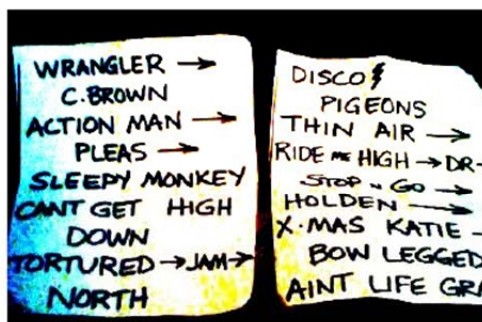 WRANGLER →
C. BROWN
ACTION MAN →
PLEAS →
SLEEPY MONKEY
CANT GET HIGH
DOWN
TORTURED → JAM →
NORTH
DISCO
PIGEONS
THIN AIR →
RIDE ME HIGH → DR-
STOP N GO →
HOLDEN →
X-MAS KATIE -
BOW LEGGED
AINT LIFE GRA